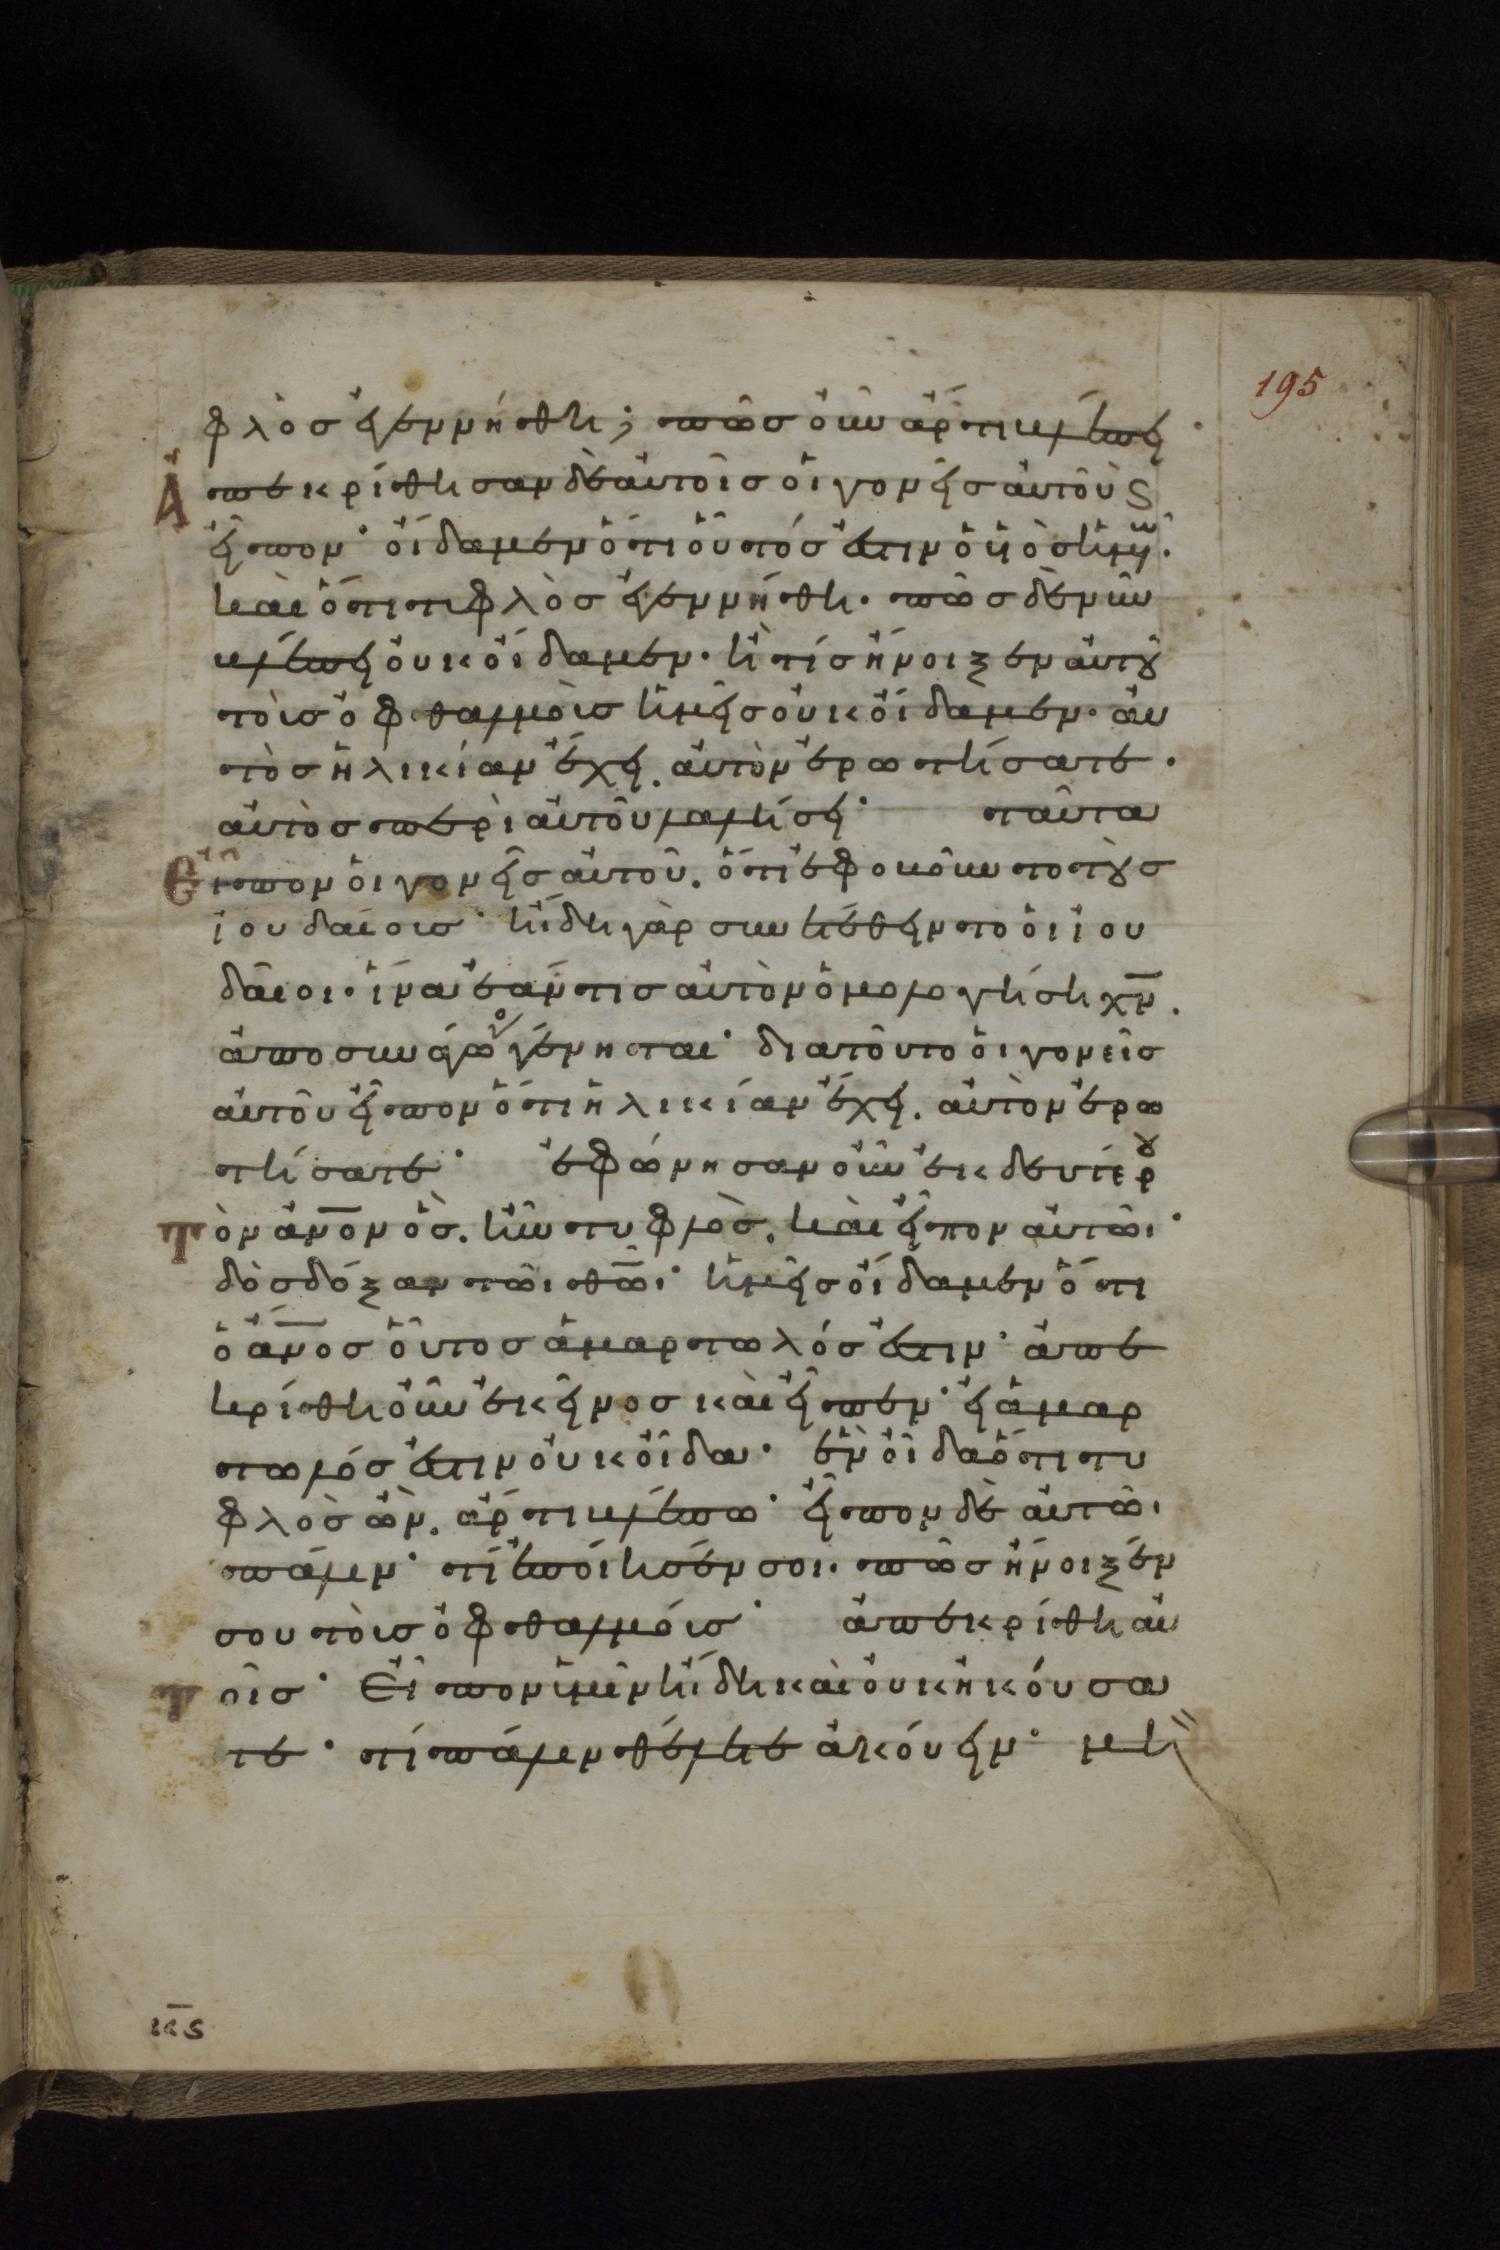 195
φλὸσ ἐγεννήθη; πῶσ οὖν ἄρτι βλέπει
Ἀπεκρίθησαν δὲ αὐτοῖσ οἱ γονεῖσ αὐτοῦ ϛ
εἶπον· οἴδαμεν ὅτι οὗτόσ ἐστιν ὁ ὑὸσ ἡμῶν.
καὶ ὅτι τυφλὸσ ἐγεννήθη. πῶσ δὲ νῦν
βλέπει οὐκ οἴδαμεν. ἢ τίσ ἤνοιξεν αὐτοῦ
τοὺσ ὀφθαλμοὺσ ἡμεῖσ οὐκ οἴδαμεν. αὐ
τὸσ ἡλικίαν ἔχει. αὐτὸν ἐρωτήσατε.
αὐτὸσ περὶ αὐτοῦ λαλήσει· ταῦτα
εἶπον οἱ γονεῖσ αὐτοῦ. ὅτι ἐφοβοῦντο τοὺσ
ἰουδαίουσ· ἤδη γὰρ συνετέθειντο οἱ ἰου
δαῖοι. ἵνα ἐάν τισ αὐτὸν ὁμολογήσῃ χν̄.
ἀποσυνάγωγοσ γένηται· διατοῦτο οἱ γονεῖσ
αὐτοῦ εἶπον ὅτι ἡλικίαν ἔχει. αὐτὸν ἐρω
τήσατε· ἐφώνησαν οὖν ἐκ δευτέρου
τὸν ἄνον ὃσ. ἦν τυφλὸσ. καὶ εἶπον αὐτῶι·
δὸσ δόξαν τῶι θῶ̄ι· ἡμεῖσ οἴδαμεν ὅτι
ὁ ἄνοσ οὗτοσ ἁμαρτωλόσ ἐστιν· ἀπε
κρίθη οὖν ἐκεῖνοσ καὶ εἶπεν· εἰ ἁμαρ
τωλόσ ἐστιν οὐκ οἶδα· ἓν οἶδα ὅτι τυ
φλὸσ ὢν. ἄρτι βλέπω· εἶπον δὲ αὐτῶι
πάλιν· τί ἐποίησέν σοι. πῶσ ἤνοιξέν
σου τοὺσ ὀφθαλμούσ· ἀπεκρίθη αὐ
τοῖσ· Εἶπον ὑμῖν ἤδη καὶ οὐκ ἠκούσα
τε· τί πάλιν θέλετε ἀκούειν· μὴ
κ̄ϛ